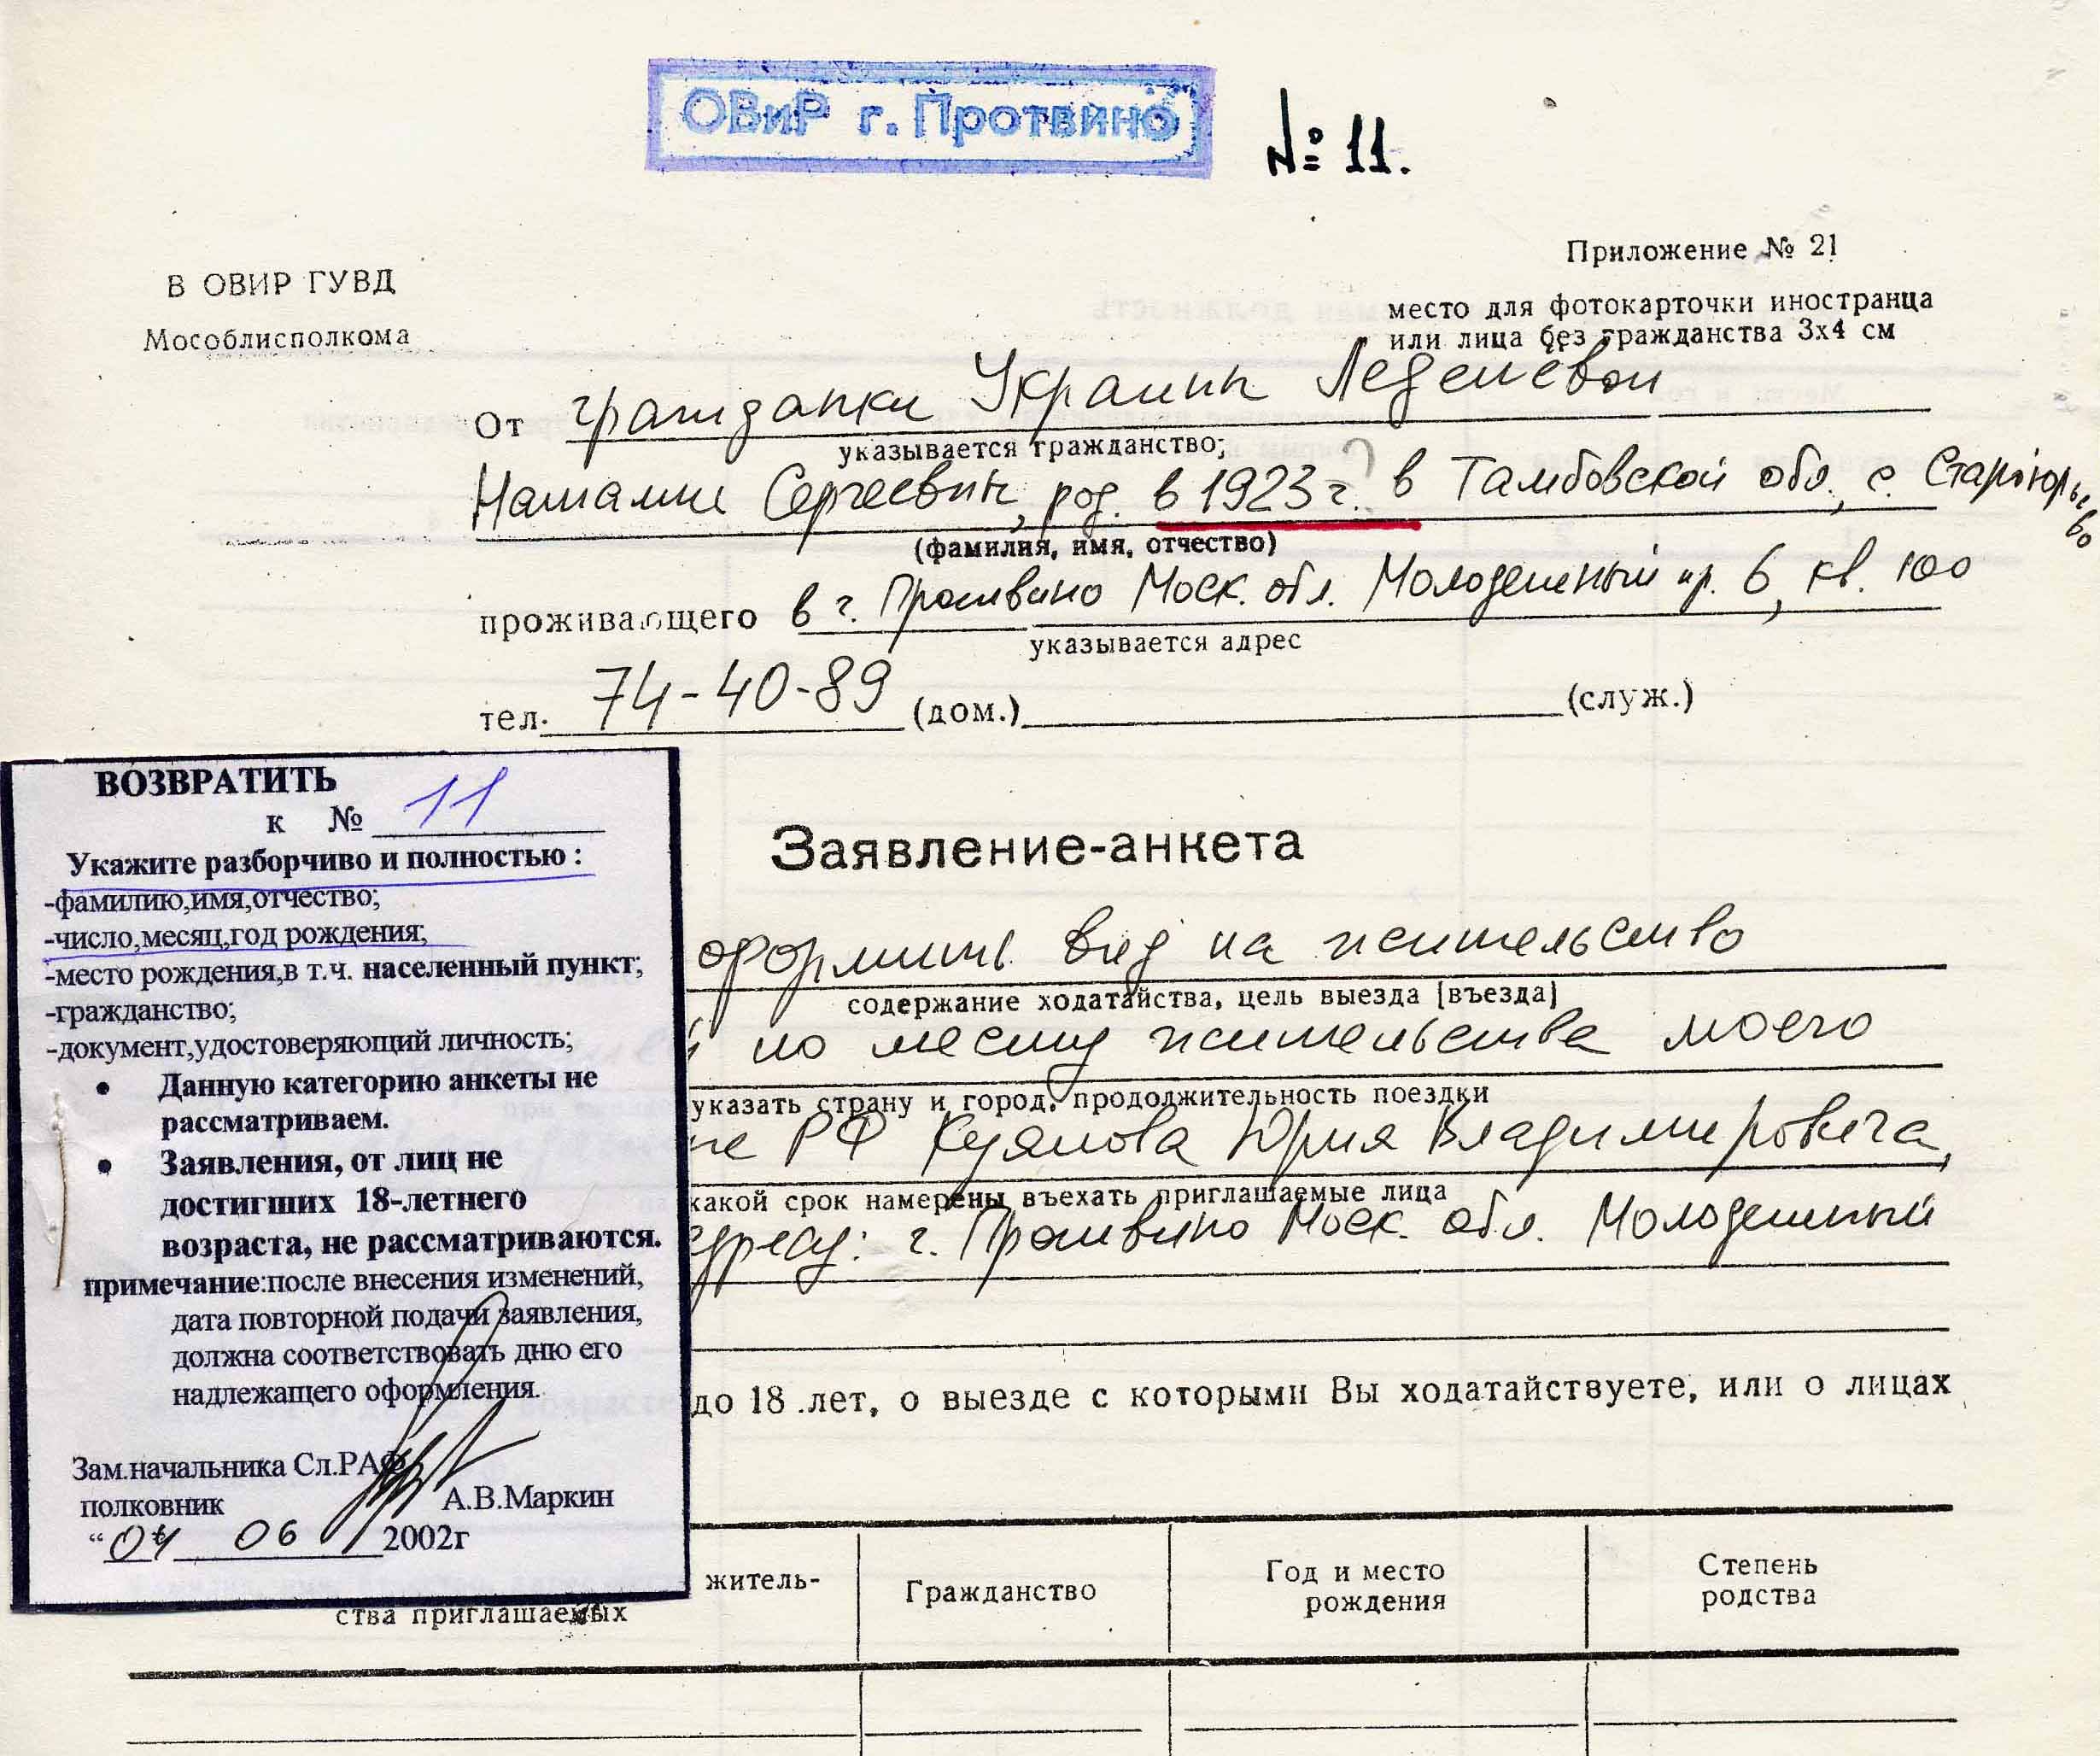 ОВиР г. Протвино
№ 11.
Приложение № 21
В ОВИР ГУВД
Мособлисполкома
место для фотокарточки иностранца
или лица без гражданства 3х4 см
От гражданки Украины Леденевой
указывается гражданство;
Наталии Сергеевны, род. в 1923 г. в Тамбовской обл., с. Староюрьево
(фамилия, имя, отчество)
проживающего в г. Протвино Моск. обл. Молодежный пр. 6, кв. 100
указывается адрес
тел. 74-40-89 (дом.) (служ.)
Заявление-анкета
оформить вид на жительство
содержание ходатайства, цель выезда [въезда]
й по месту жительства моего
указать страну и город, продолжительность поездки
не РФ Юрия Владимировича,
какой срок намерены въехать приглашаемые лица
адресу: г. Протвино Моск. обл. Молодежный
до 18 лет, о выезде с которыми Вы ходатайствуете, или о лицах
житель-
ства приглашаемых
Гражданство
Год и место
рождения
Степень
родства
ВОЗВРАТИТЬ
к № 11
Укажите разборчиво и полностью :
-фамилию,имя,отчество;
-число,месяц,год рождения;
-место рождения,в т.ч. населенный пункт;
-гражданство;
-документ,удостоверяющий личность;
• Данную категорию анкеты не
рассматриваем.
• Заявления, от лиц не
достигших 18-летнего
возраста, не рассматриваются.
примечание:после внесения изменений,
дата повторной подачи заявления,
должна соответствовать дню его
надлежащего оформления.
Зам.начальника Сл.РАФ
полковник А.В.Маркин
“04 06 2002г